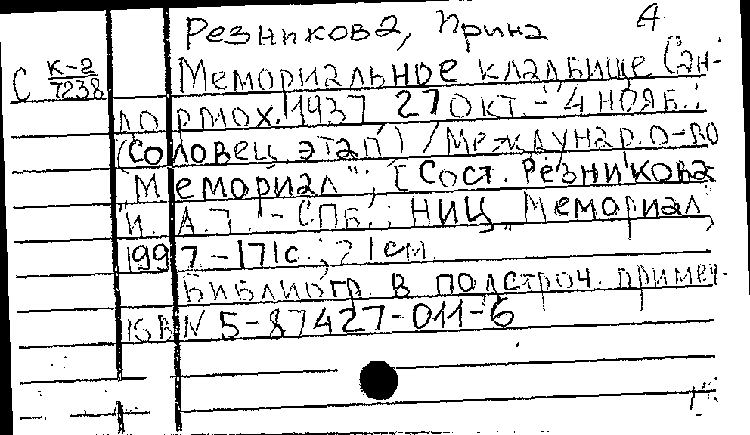 Резникова, Ирина 4
С К-2/7238 Мемориальное кладбище Сан-
дормох. 1937 27 окт. - 4 нояб.:
(Соловец. этап) / Междунар. о-во
"Мемориал"; [Сост. Резникова
И. А.]. - СПб.: НИЦ "Мемориал",
1997. - 171с.; 21см.
Библиогр. в подстроч. примеч.
ISBN 5-87427-011-6